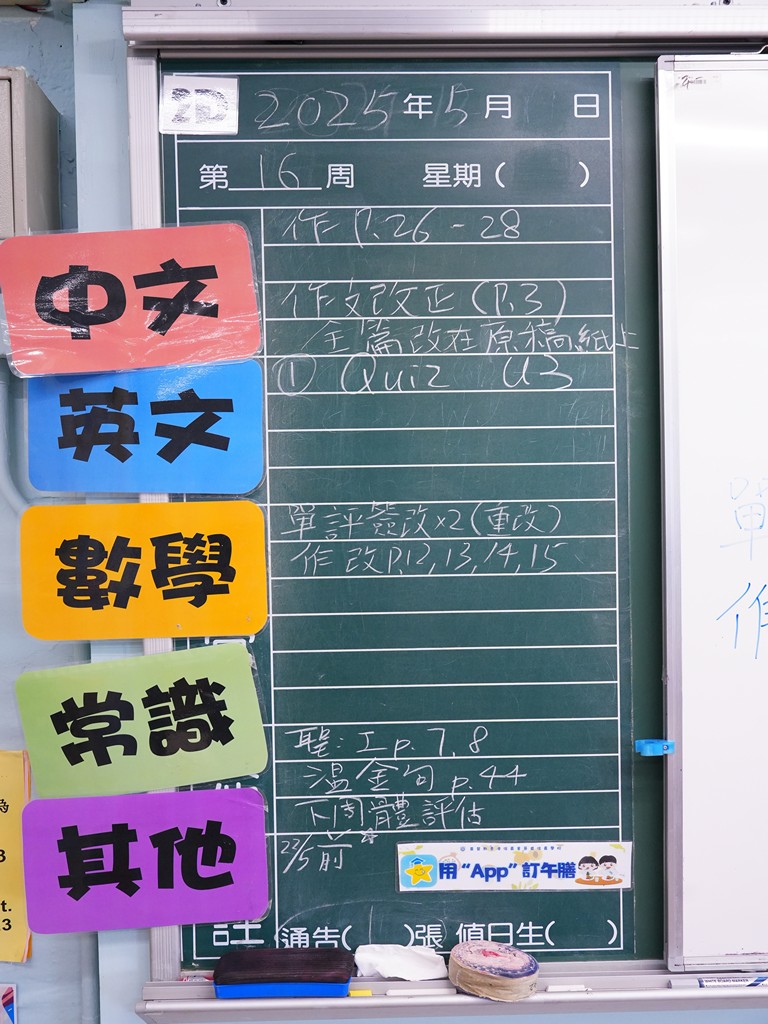 2D 2025年5月 日
第16周 星期( )
作 P.26-28
中文
作文改正(P.3)
全篇改在原稿紙上
英文
① Quiz U3
數學
單評簽改×2(重改)
作改P.12,13,14,15
常識
聖:工p.7,8
溫金句p.44
下周體評估
其他
22/5前
用“App”訂午膳
通告(1)張 值日生( )
單
作